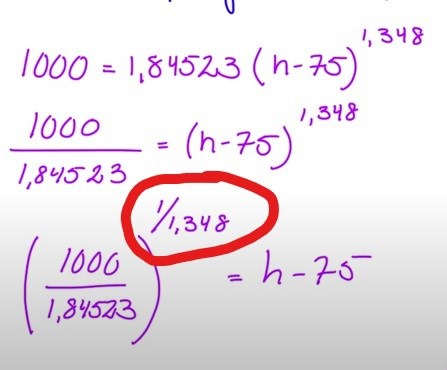 1000 = 1,84523 (h-75)^1,348
1000/1,84523 = (h-75)^1,348
(1000/1,84523)^1/1,348 = h-75